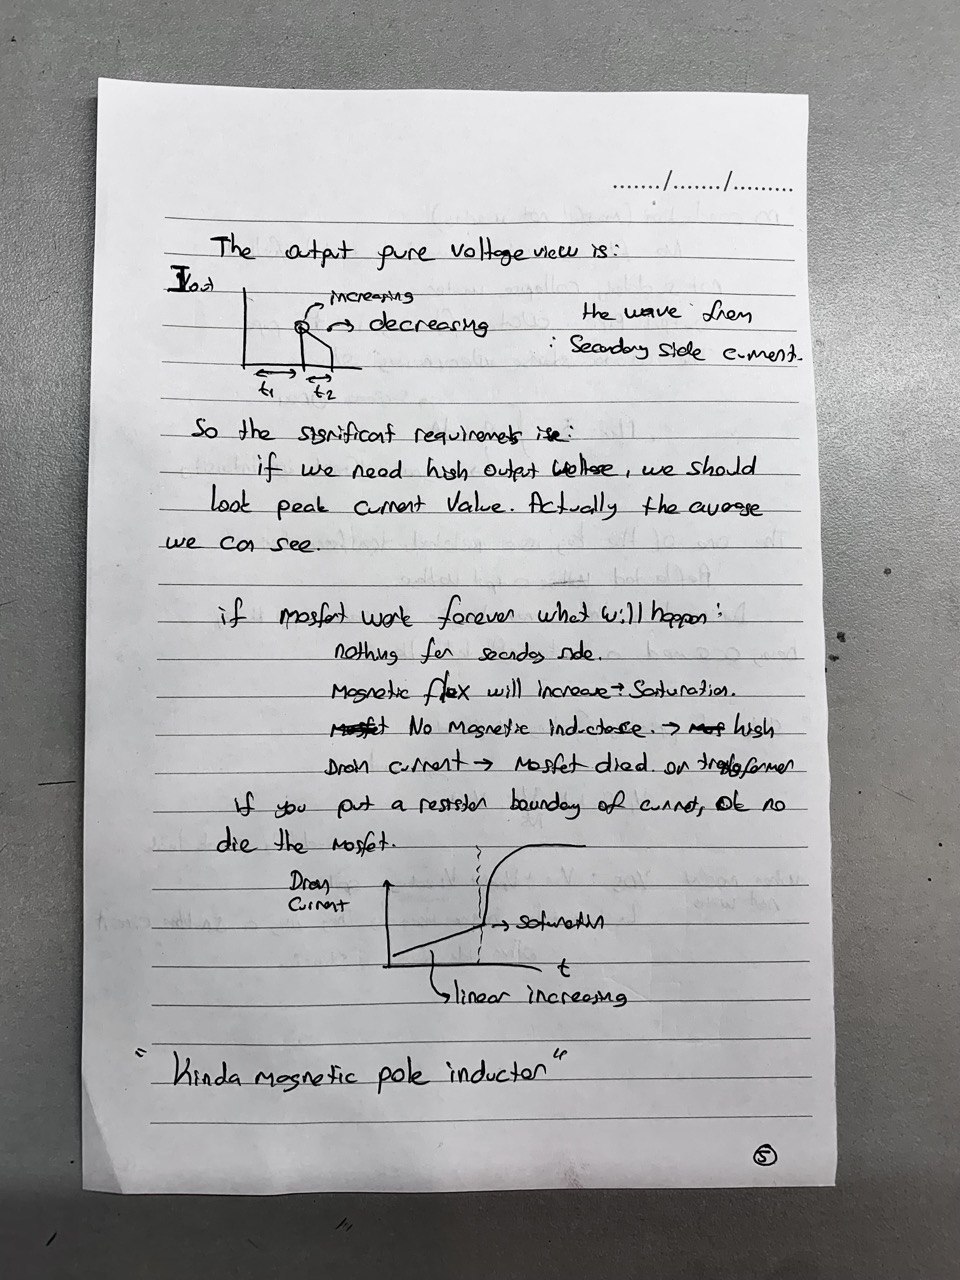 ......./......./.........
The output pure voltage view is:
Iout
increasing
decreasing
the wave from
: Secondary side current.
t1 t2
So the significant requiremets is:
if we need high output voltage, we should
look peak current value. Actually the average
we can see.
if mosfet work forever what will happen:
nothing for seconday side.
Magnetic flux will increase → Saturation.
No magnetic inductace. → high
Drain current → Mosfet died. or transformer
if you put a resistor boundary of current, Ok no
die the mosfet.
Drain
Current
→ saturation
t
linear increasing
"Kinda magnetic pole inductor"
5